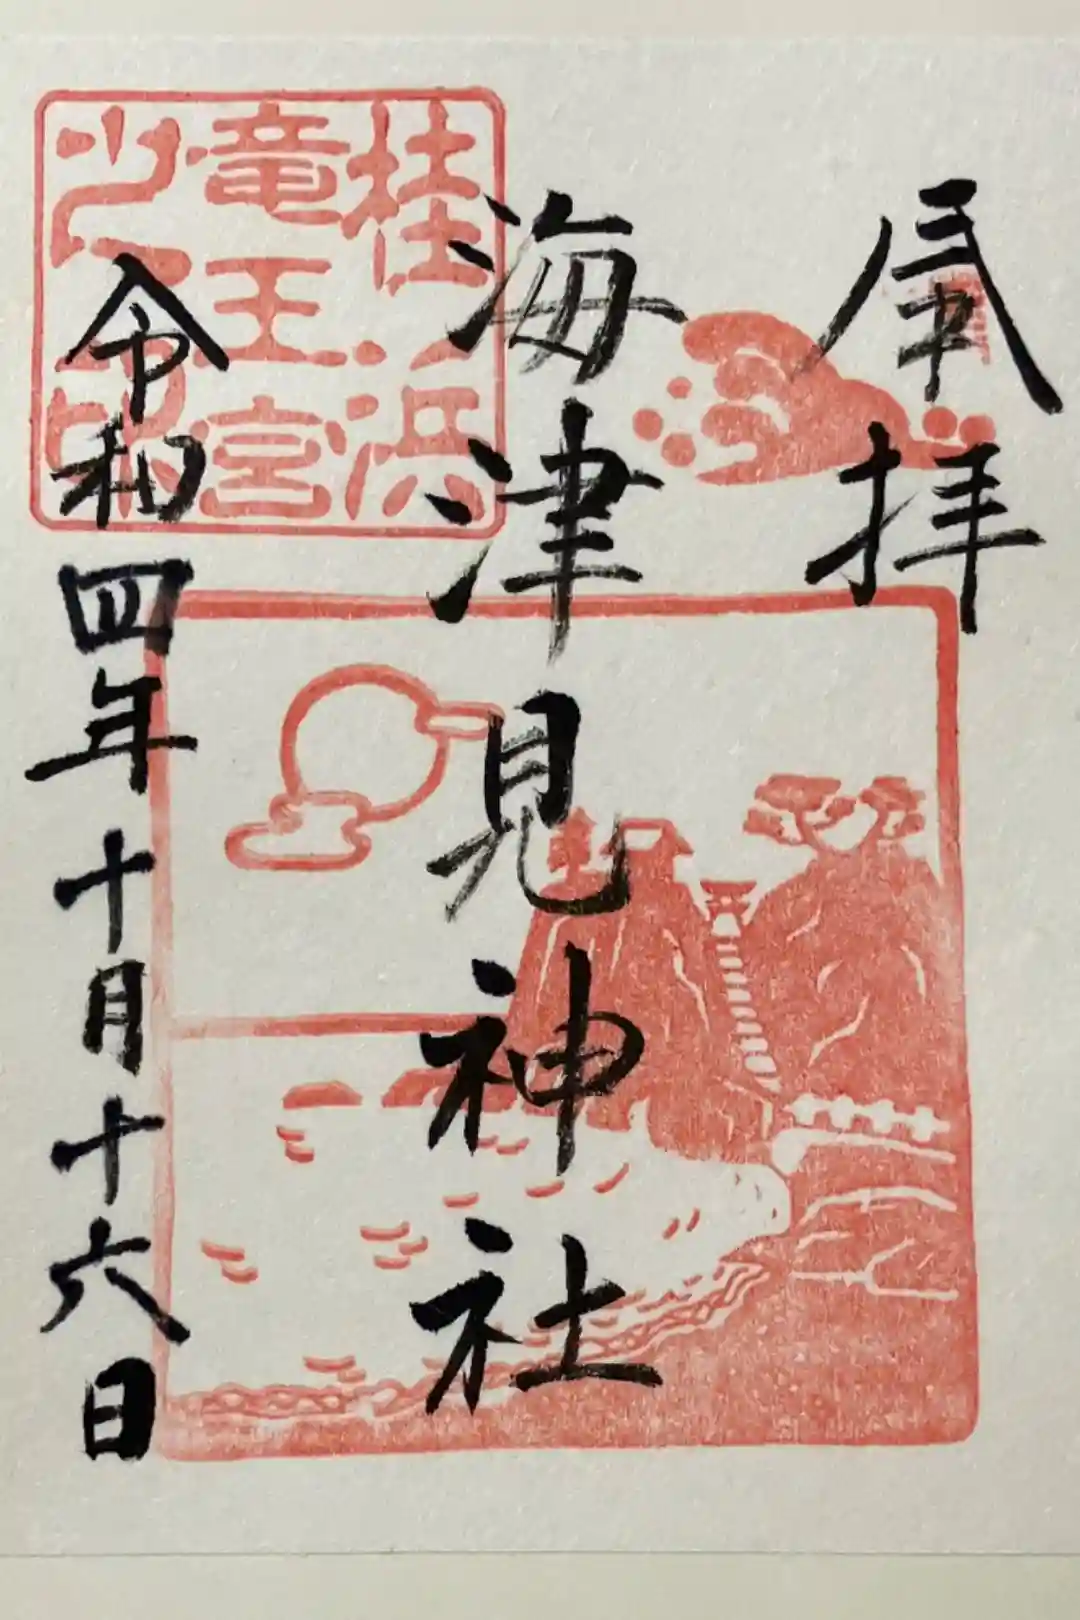 奉拝
海津見神社
桂浜
竜王宮
之印
令和四年十月十六日